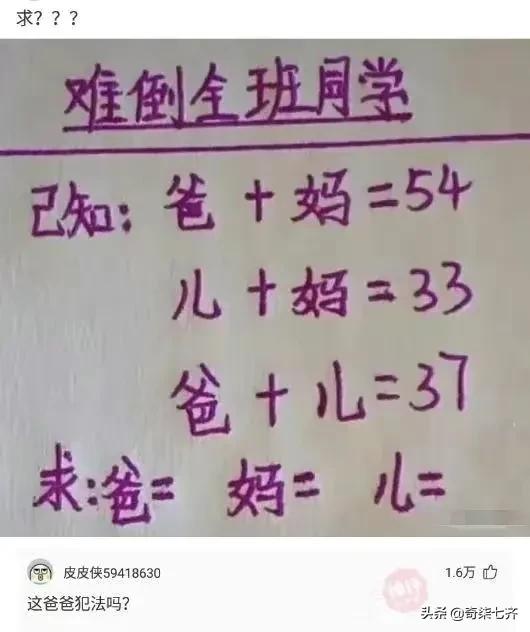 求？？？
难倒全班同学
已知：爸＋妈＝54
儿＋妈＝33
爸＋儿＝37
求：爸＝ 妈＝ 儿＝
皮皮侠59418630
1.6万
这爸爸犯法吗？
头条 @奇柒七齐